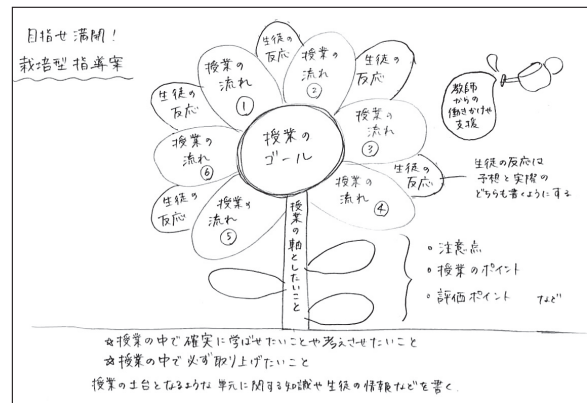 目指せ満開！
栽培型指導案
生徒の
反応
授業の
流れ
①
生徒の
反応
授業の
流れ
②
生徒の
反応
授業の
流れ
③
生徒の
反応
授業の
流れ
④
授業の
流れ
⑤
生徒の
反応
授業の
流れ
⑥
授業の
ゴール
授業の軸としたいこと
教師
からの
働きかけや
支援
生徒の反応は
予想と実際の
どちらも書くようにする
・注意点
・授業のポイント
・評価ポイント など
☆授業の中で確実に学ばせたいことや考えさせたいこと
☆授業の中で必ず取り上げたいこと
授業の土台となるような単元に関する知識や生徒の情報などを書く。